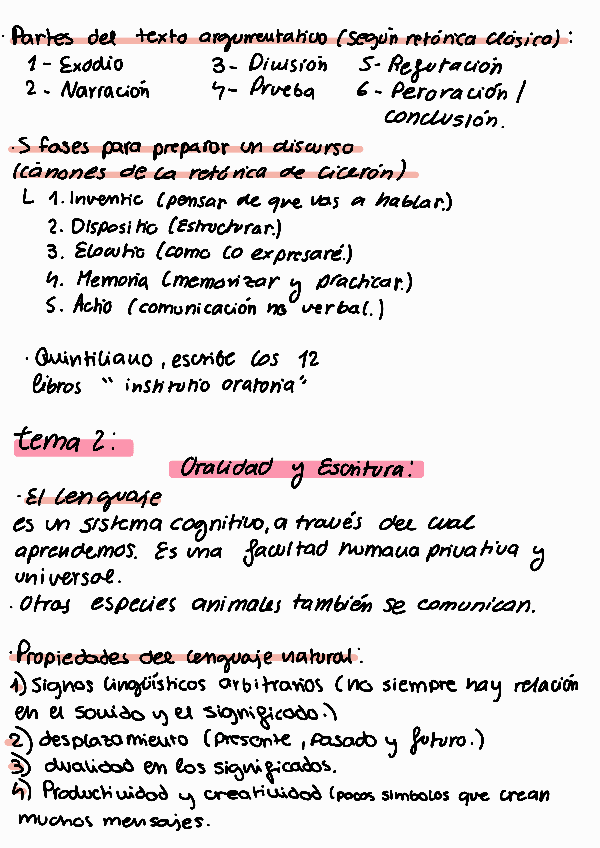 · Partes del texto argumentativo (según retórica clásica):
1 - Exodio 3 - División 5 - Refutación
2 - Narración 4 - Prueba 6 - Peroración /
conclusión.
· 5 fases para preparar un discurso
(cánones de la retórica de Cicerón)
L 1. Inventio (pensar de que vas a hablar.)
2. Dispositio (Estructurar.)
3. Elocutio (como lo expresaré.)
4. Memoria (memorizar y practicar.)
5. Actio (comunicación no verbal.)
· Quintiliano, escribe los 12
libros "institutio oratoria"
tema 2:
Oralidad y Escritura:
· El lenguaje
es un sistema cognitivo, a través del cual
aprendemos. Es una facultad humana privativa y
universal.
· Otras especies animales también se comunican.
· Propiedades del lenguaje natural:
1) Signos lingüísticos arbitrarios (no siempre hay relación
en el sonido y el significado.)
2) desplazamiento (presente, pasado y futuro.)
3) dualidad en los significados.
4) Productividad y creatividad (pocos símbolos que crean
muchos mensajes.